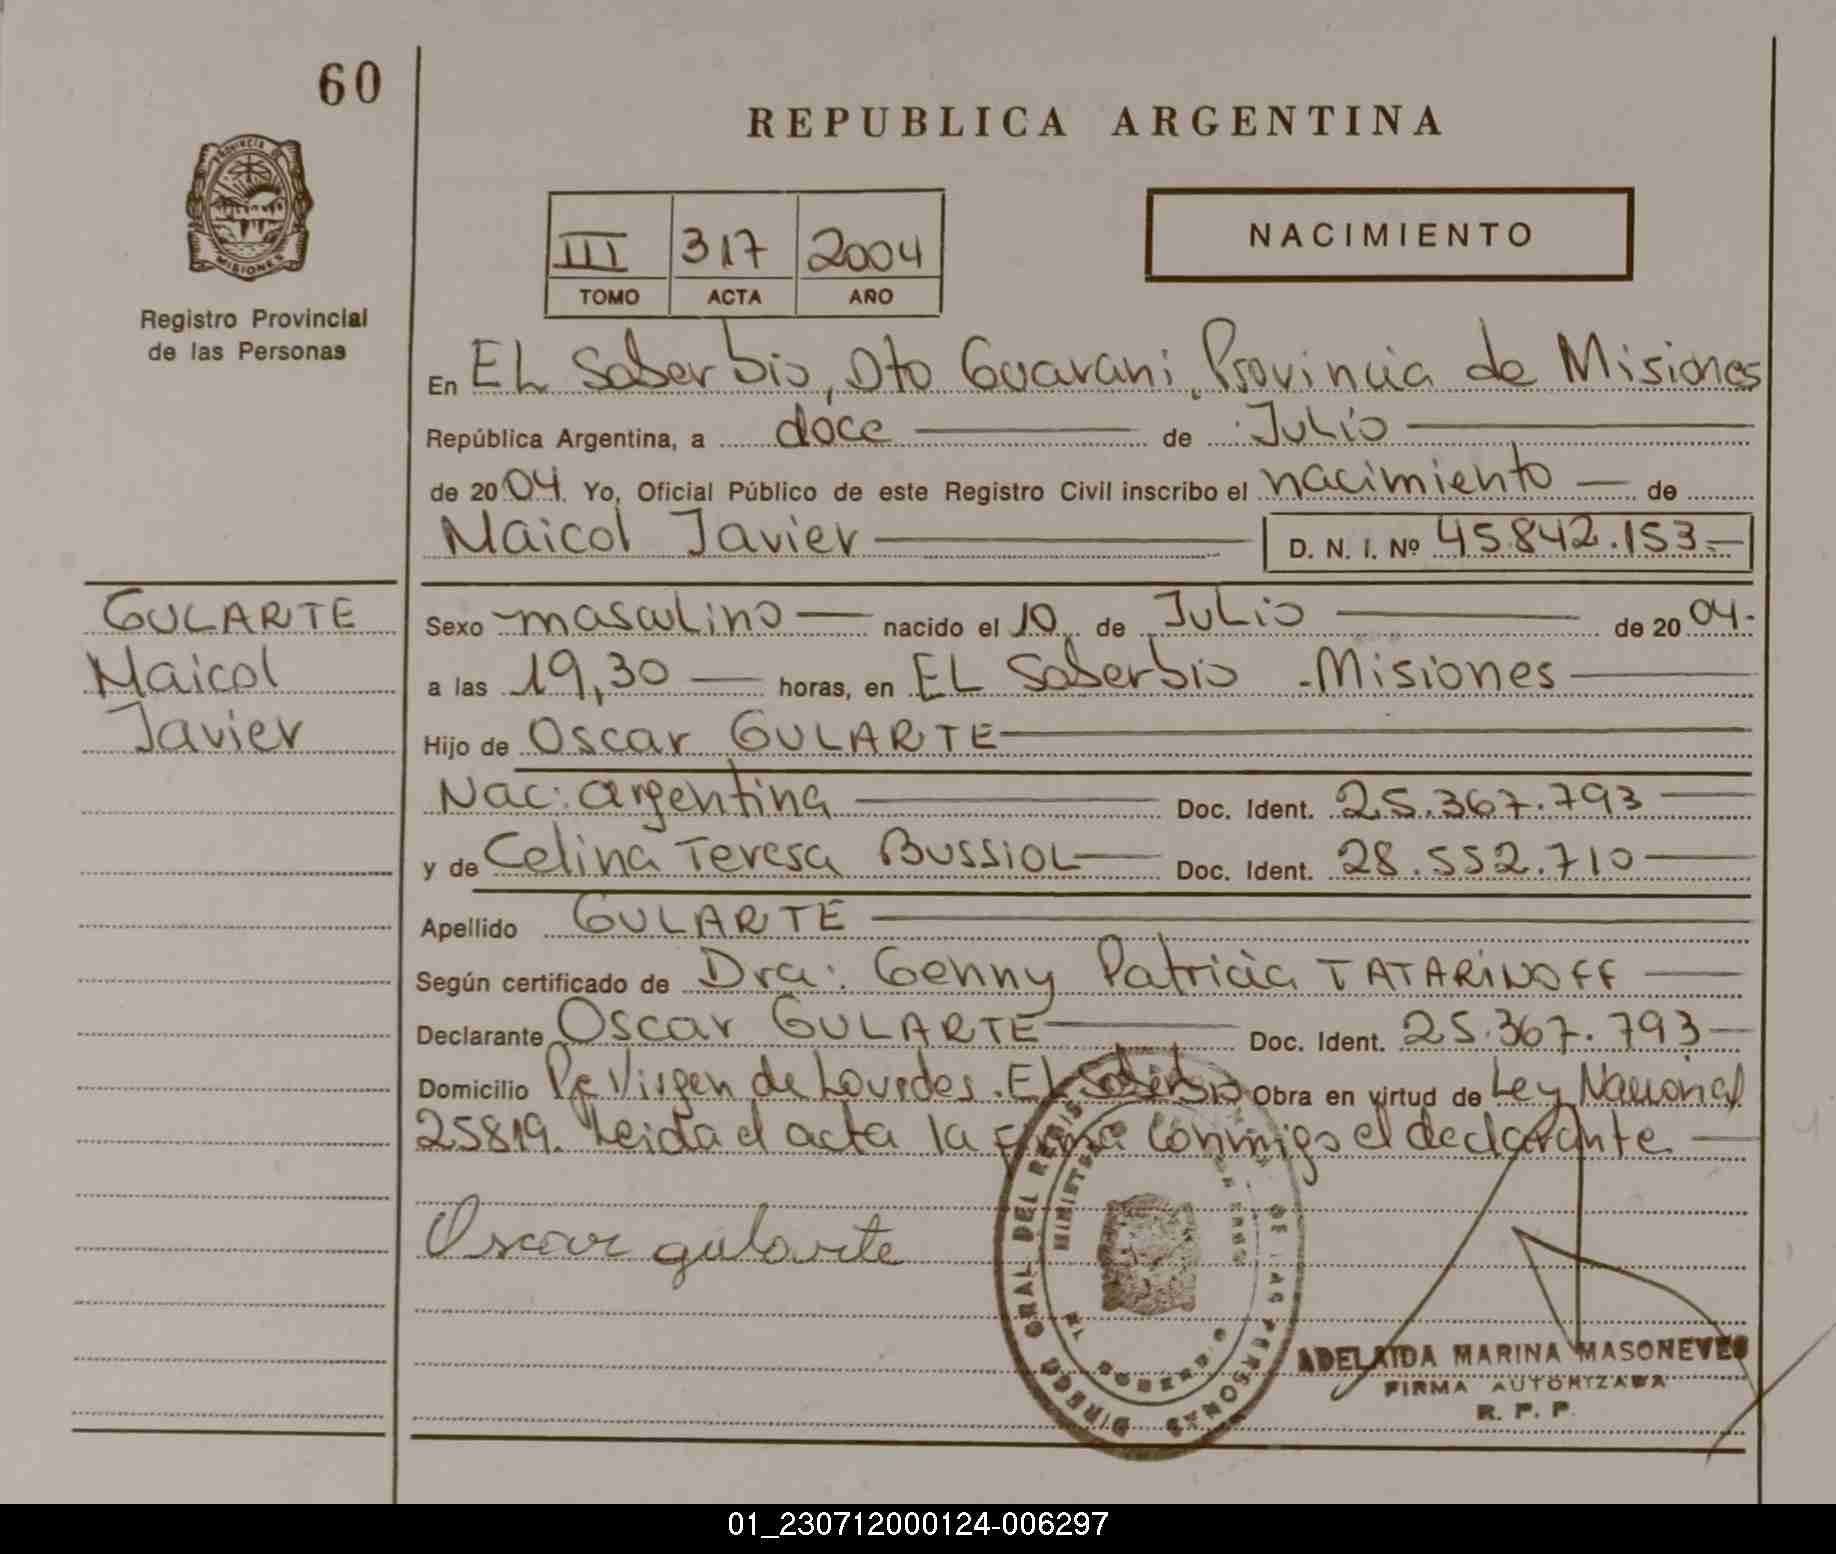 60
REPUBLICA ARGENTINA
PROVINCIA DE
MISIONES
Registro Provincial
de las Personas
III 317 2004
TOMO ACTA AÑO
NACIMIENTO
En EL Soberbio, Dto Guarani, Provincia de Misiones
República Argentina, a doce de Julio
de 2004. Yo, Oficial Público de este Registro Civil inscribo el nacimiento de
Maicol Javier D. N. I. Nº 45.842.153.-
GULARTE
Maicol
Javier
Sexo masculino nacido el 10 de Julio de 2004.
a las 19,30 horas, en EL Soberbio - Misiones
Hijo de Oscar GULARTE
Nac: argentina Doc. Ident. 25.367.793
y de Celina Teresa BUSSIOL Doc. Ident. 28.552.710
Apellido GULARTE
Según certificado de Dra: Genny Patricia TATARINOFF
Declarante Oscar GULARTE Doc. Ident. 25.367.793
Domicilio Virgen de Lourdes. El Soberbio Obra en virtud de Ley Nacional
25819. Leida el acta la firma conmigo el declarante
Oscar gularte
DIRECC GRAL DEL REGIS DE LAS PERSONAS
MINISTER
GOBIERNO
ADELAIDA MARINA MASONEVES
FIRMA AUTORIZADA
R. P. P.
01_230712000124-006297